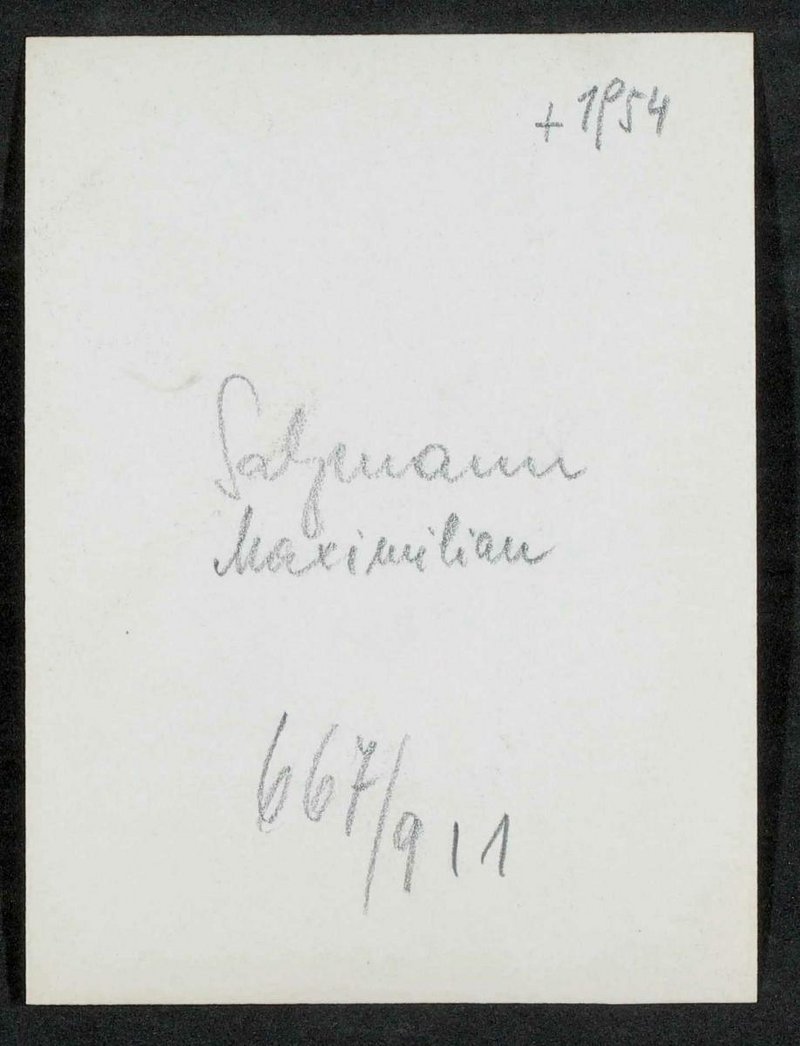 + 1954
Salzmann
Maximilian
667/911